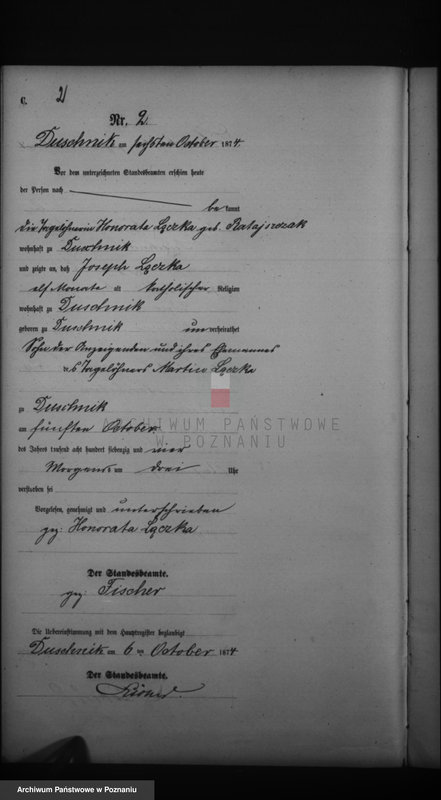 C. 2
Nr. 2.
Duschnik am sechsten October 1874.
Vor dem unterzeichneten Standesbeamten erschien heute
der Person nach
bekannt
die Tagelöhnerin Honorata Łączka geb. Ratajszczak
wohnhaft zu Duschnik
und zeigte an, daß Joseph Łączka
elf Monate alt katholischer Religion
wohnhaft zu Duschnik
geboren zu Duschnik unverheirathet
Sohn der Anzeigenden und ihres Ehemannes
des Tagelöhners Martin Łączka
zu Duschnik
am fünften October
ARCHIWUM PAŃSTWOWE
W POZNANIU
des Jahres tausend acht hundert siebenzig und vier
Morgens um drei Uhr
verstorben sei
Vorgelesen, genehmigt und unterschrieben
gez: Honorata Łączka
Der Standesbeamte.
gez: Fischer
Die Uebereinstimmung mit dem Hauptregister beglaubigt
Duschnik am 6ten October 1874
Der Standesbeamte.
Archiwum Państwowe w Poznaniu